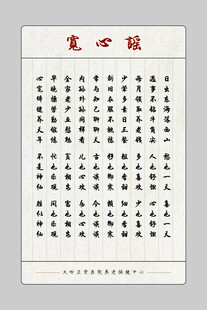 寬心謠
日出东海落西山 愁也一天 喜也一天
遇事不钻牛角尖 人也舒坦 心也舒坦
每月领取养老钱 多也喜欢 少也喜欢
少荤多素日三餐 粗也香甜 细也香甜
新旧衣服不挑拣 好也御寒 赖也御寒
常与知己聊聊天 古也谈谈 今也谈谈
内孙外孙同样看 儿也心欢 女也心欢
全家老少互慰勉 贫也相安 富也相安
早晚操劳勤锻炼 忙也乐观 闲也乐观
心宽体健养天年 不是神仙 胜似神仙
医院养老保健中心